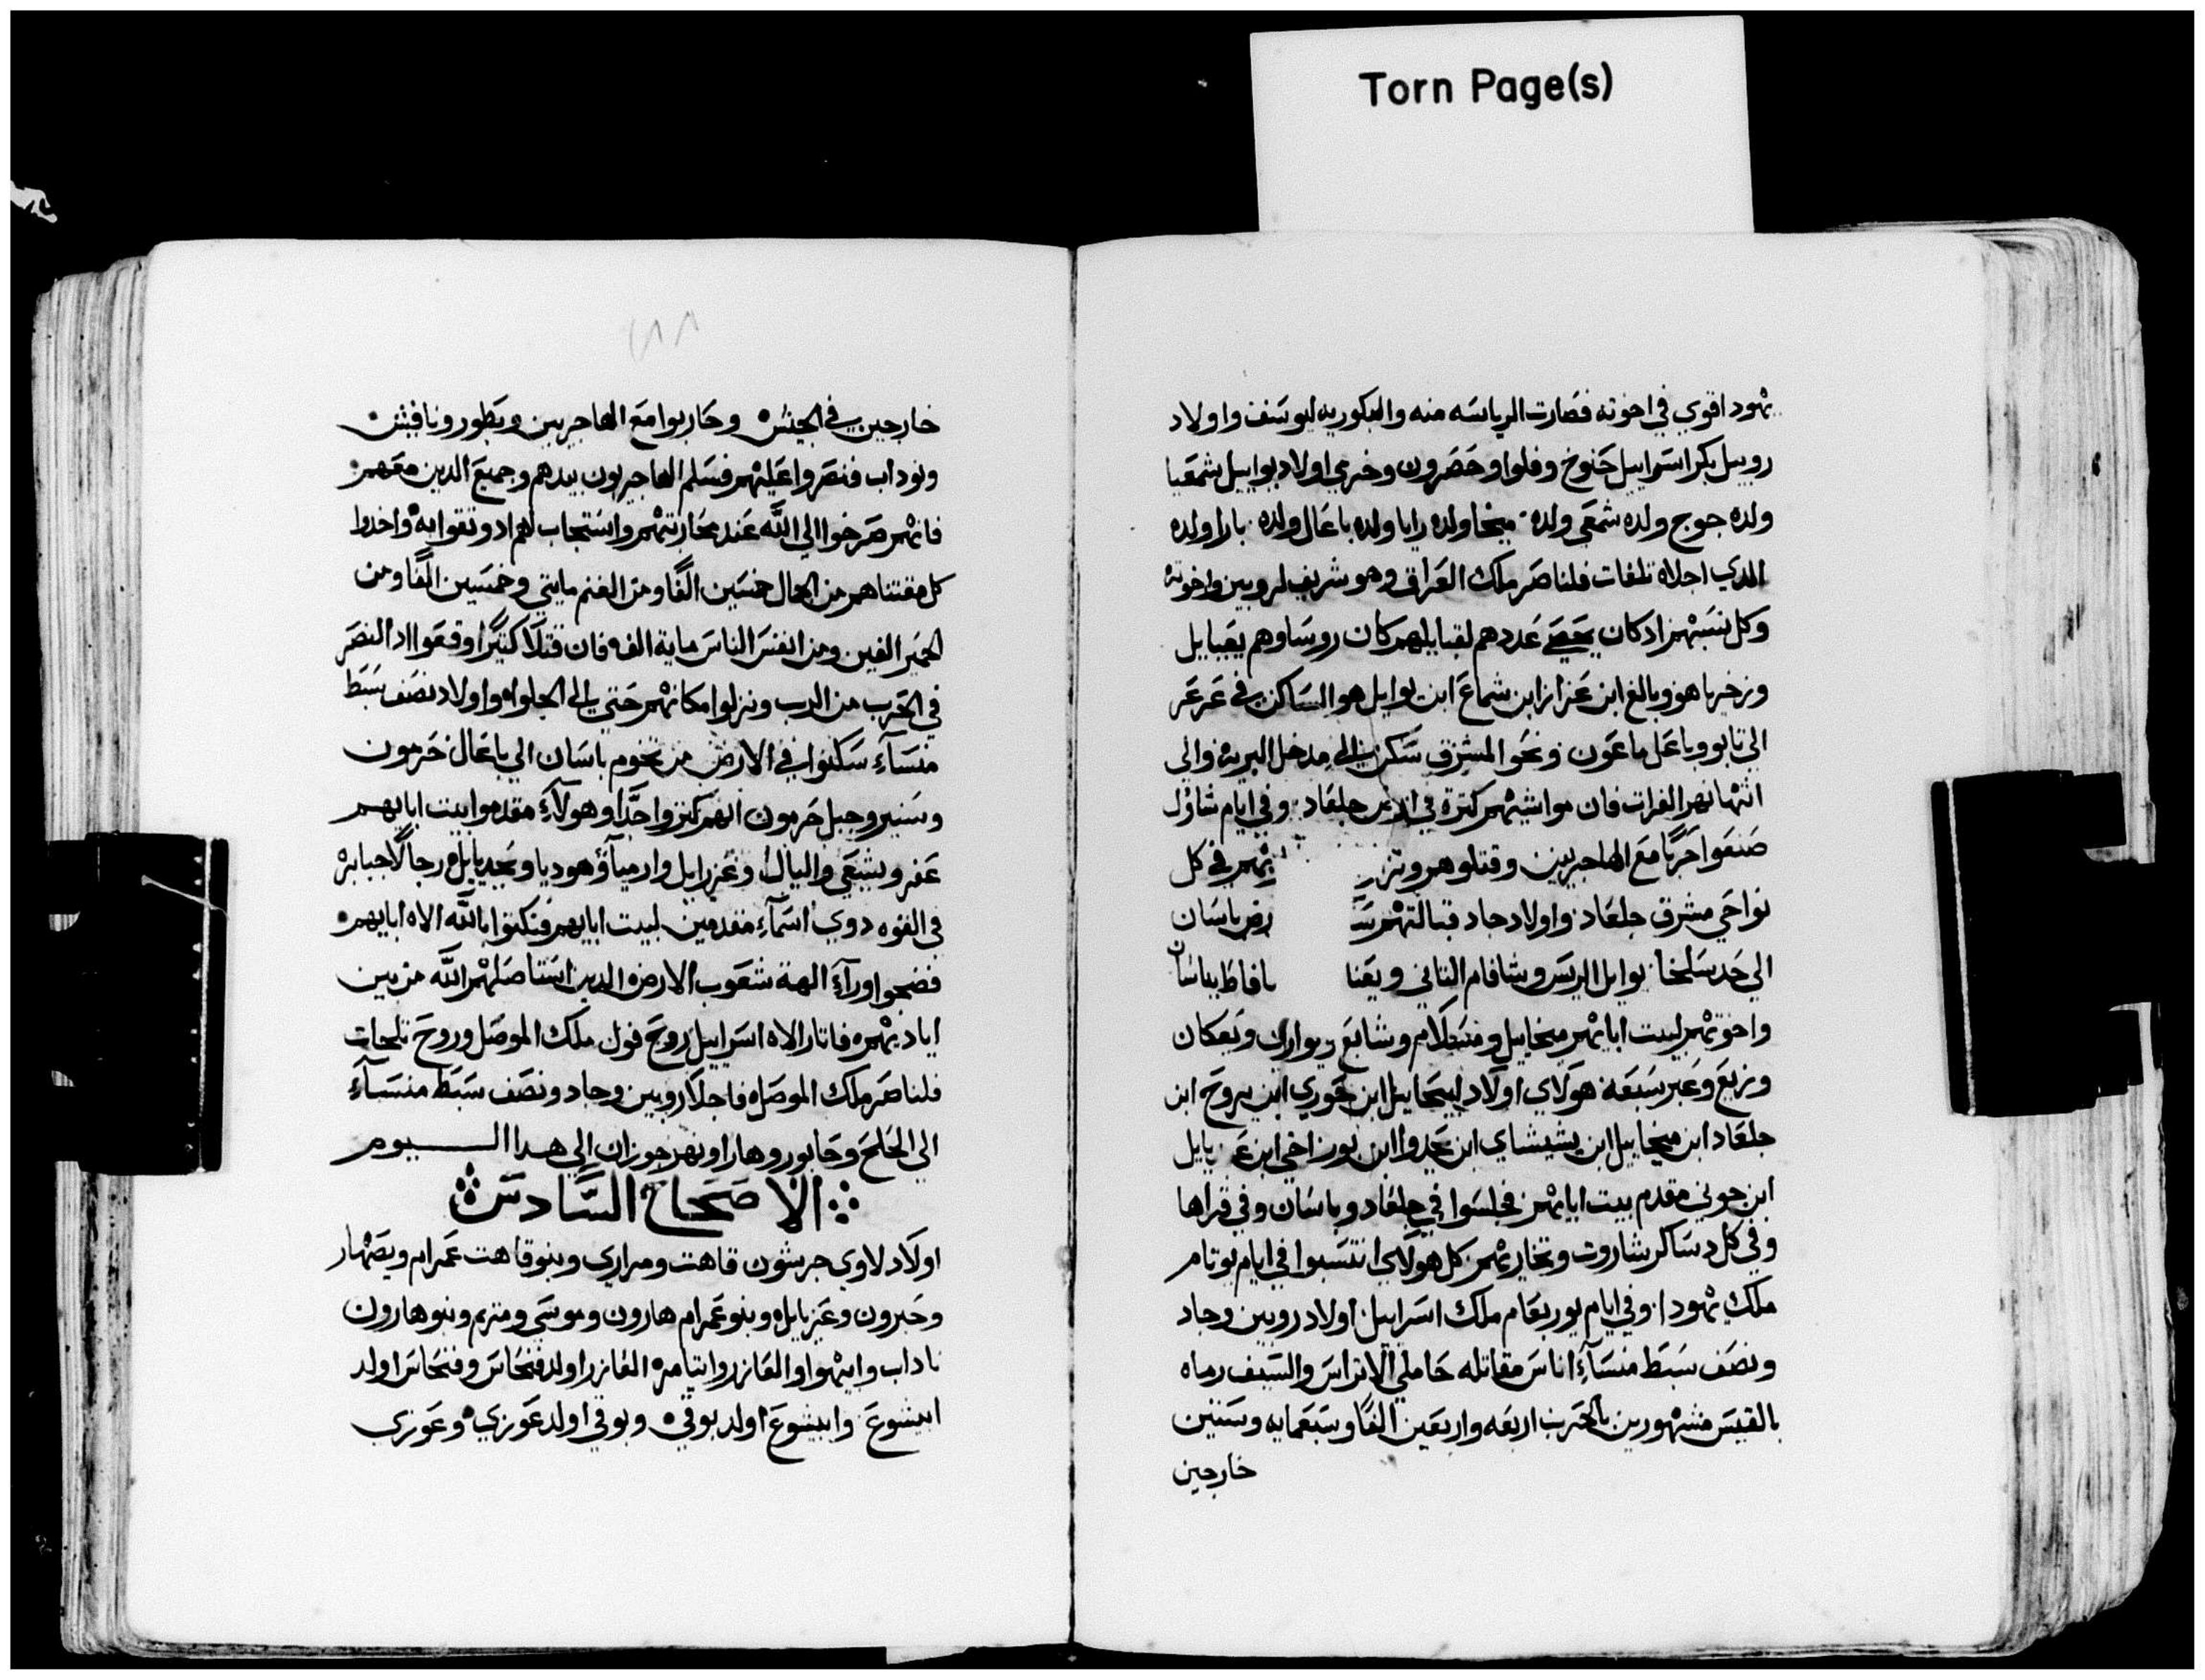 Torn Page(s)
يهود اقوي في اخوته فصارت الرياسه منه والبكوريه ليوسف واولاد
روبيل بكر اسراييل حنوخ وفلوا وحصرون وخرمي اولاد يواييل شمعيا
ولده جوج ولده شمعي ولده ميخا ولده رايا ولده باعال ولده بارا ولده
الدي اجلاه تلغات فلناصر ملك العراق وهو شريف لروبين واخوته
وكل نسبهم ادكان يحصي عددهم لقبايلهم كان روساوهم يعيايل
وزخريا هو وبالغ ابن عزاز ابن شماع ابن يوايل هو الساكن في عرعر
الي نابو وباعل ماعون ونحو المشرق سكن الي مدخل البريه والي
انتها نهر الفرات فان مواشيهم كترة في ارض جلعاد وفي ايام شاوُل
صنعوا حربًا مع الهاجريين وقتلوهم في كل
نواحي مشرق جلعاد واولاد جاد قبالتهم رض باسان
الي حد سلخا يوايل الريس وشافام التاني ويعنا
واخوتهم لبيت ابايهم ميخاييل ومشلام وشابع ويوارى ويعكان
وزيع وعبر سبعه هولاي اولاد ابيحاييل ابن حوري ابن يروح ابن
جلعاد ابن ميخاييل ابن يشيشاي ابن يحدوا ابن بوز اخي ابن
ابن جوني مقدم بيت ابايهم فجلسوا في جلعاد وباسان وفي قراها
وفي كل دساكر شاروت وتخاريهم كل هولاي انتسبوا في ايام يوتام
ملك يهودا وفي ايام يوربعام ملك اسراييل اولاد روبين وجاد
ونصف سبط منساآ اناس مقاتله حاملي الاتراس والسيف رماه
بالقيس مشهورين بالحرب اربعه واربعين الفًا وسبعمايه وستين
خارجين
٢٨٨
خارجين في الجيش وحاربوا مع الهاجريين ويطور ونافيش
ونوداب فنصروا عليهم فسلم الهاجريون بيدهم وجميع الدين معهم
فانهم صرخوا الي الله عند محاربتهم واستجاب لهم اد وتقوا به واخدوا
كل مقتناهم من الجمال خمسين الفًا ومن الغنم مايتي وخمسين الفًا ومن
الحمير الفين ومن انفس الناس ماية الف فان قتلا كتيرًا وقعوا اد النصر
في الحرب من الرب ونزلوا مكانهم حتي الي الجلوه واولاد نصف سبط
منساآ سكنوا في الارض من تخوم باسان الي باعال حرمون
وسنير وجبل حرمون انهم كتيروا جدًا وهولاء مقدموا بيت ابايهم
عفر ويشعي واليال وعزرايل وارميا وهوديا ويحديايل رجالًا جبابره
في القوه دوي اسماء مقدمين لبيت ابايهم فنكتوا بالله الاه ابايهم
فضحوا ورآء الهة شعوب الارض الدين استاصلهم الله من بين
اياديهم فاتار الاه اسراييل روح فول ملك الموصل وروح تلجات
فلناصر ملك الموصل فاجلا روبين وجاد ونصف سبط منساآ
الي الحلح وحابور وهارا ونهر جوزان الي هدا اليوم
الاصحاح السادس
اولاد لاوي جرشون قاهت ومراري وبنو قاهت عمرام ويصهار
وحبرون وعزيايل وبنو عمرام هارون وموسي ومريم وبنو هارون
ناداب وابيهوا والعازر وايتامر العازر اولد فنحاس وفنحاس اولد
ابيشوع وابيشوع اولد بوقي وبوقي اولد عوزي وعوزي